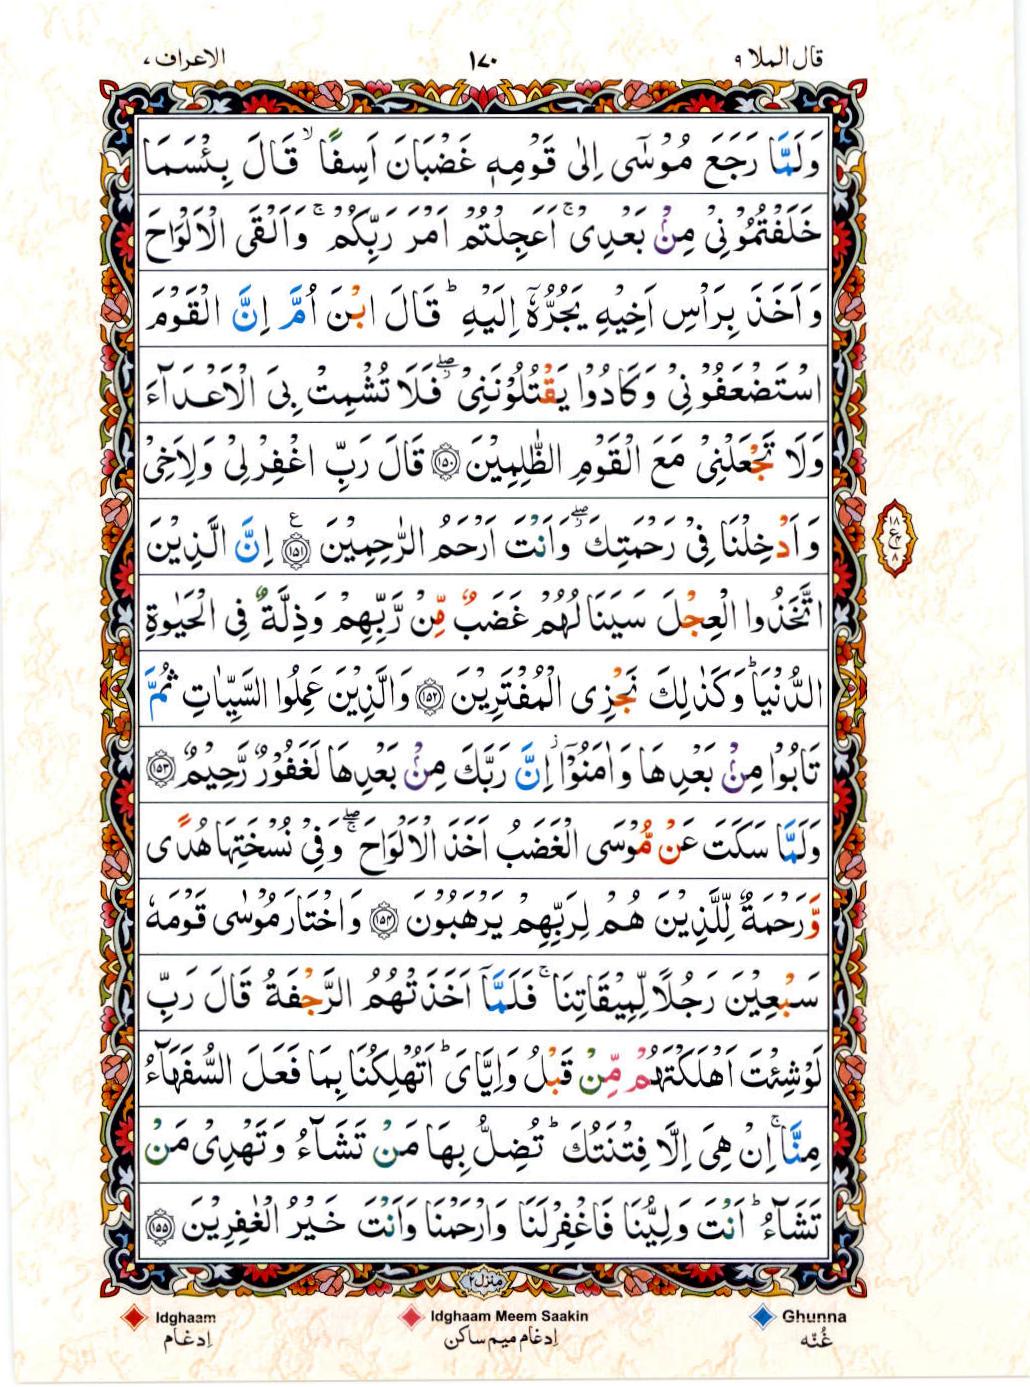 قال الملا ٩ ١٧٠ الاعراف ٧
وَلَمَّا رَجَعَ مُوْسٰٓى اِلٰى قَوْمِهٖ غَضْبَانَ اَسِفًا ۙ قَالَ بِئْسَمَا
خَلَفْتُمُوْنِیْ مِنْۢ بَعْدِیْ ۚ اَعَجِلْتُمْ اَمْرَ رَبِّكُمْ ۚ وَاَلْقَى الْاَلْوَاحَ
وَاَخَذَ بِرَاْسِ اَخِیْهِ یَجُرُّهٗۤ اِلَیْهِ ؕ قَالَ ابْنَ اُمَّ اِنَّ الْقَوْمَ
اسْتَضْعَفُوْنِیْ وَكَادُوْا یَقْتُلُوْنَنِیْ ۖؗ فَلَا تُشْمِتْ بِیَ الْاَعْدَآءَ
وَلَا تَجْعَلْنِیْ مَعَ الْقَوْمِ الظّٰلِمِیْنَ ﴿١٥٠﴾ قَالَ رَبِّ اغْفِرْ لِیْ وَلِاَخِیْ
وَاَدْخِلْنَا فِیْ رَحْمَتِكَ ۖؗ وَاَنْتَ اَرْحَمُ الرّٰحِمِیْنَ ﴿١٥١﴾ ع اِنَّ الَّذِیْنَ
١٨ ع ٨
اتَّخَذُوا الْعِجْلَ سَیَنَالُهُمْ غَضَبٌ مِّنْ رَّبِّهِمْ وَذِلَّةٌ فِی الْحَیٰوةِ
الدُّنْیَا ؕ وَكَذٰلِكَ نَجْزِی الْمُفْتَرِیْنَ ﴿١٥٢﴾ وَالَّذِیْنَ عَمِلُوا السَّیِّاٰتِ ثُمَّ
تَابُوْا مِنْۢ بَعْدِهَا وَاٰمَنُوْۤا ؗ اِنَّ رَبَّكَ مِنْۢ بَعْدِهَا لَغَفُوْرٌ رَّحِیْمٌ ﴿١٥٣﴾
وَلَمَّا سَكَتَ عَنْ مُّوْسَى الْغَضَبُ اَخَذَ الْاَلْوَاحَ ۖۚ وَفِیْ نُسْخَتِهَا هُدًى
وَّرَحْمَةٌ لِّلَّذِیْنَ هُمْ لِرَبِّهِمْ یَرْهَبُوْنَ ﴿١٥٤﴾ وَاخْتَارَ مُوْسٰى قَوْمَهٗ
سَبْعِیْنَ رَجُلًا لِّمِیْقَاتِنَا ۚ فَلَمَّاۤ اَخَذَتْهُمُ الرَّجْفَةُ قَالَ رَبِّ
لَوْ شِئْتَ اَهْلَكْتَهُمْ مِّنْ قَبْلُ وَاِیَّایَ ؕ اَتُهْلِكُنَا بِمَا فَعَلَ السُّفَهَآءُ
مِنَّا ۚ اِنْ هِیَ اِلَّا فِتْنَتُكَ ؕ تُضِلُّ بِهَا مَنْ تَشَآءُ وَتَهْدِیْ مَنْ
تَشَآءُ ؕ اَنْتَ وَلِیُّنَا فَاغْفِرْ لَنَا وَارْحَمْنَا وَاَنْتَ خَیْرُ الْغٰفِرِیْنَ ﴿١٥٥﴾
منزل ٢
Idghaam Idghaam Meem Saakin Ghunna
اِدغام اِدغام میم ساکن غُنّه